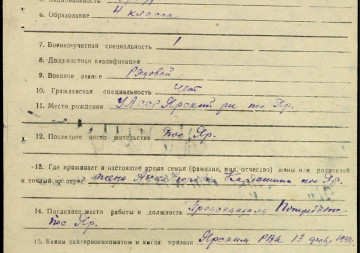 6. Образование 4 класса
7. Военноучетная специальность 1
8. Должностная квалификация
9. Военное звание Рядовой
10. Гражданская специальность
11. Место рождения УАССР Ярский р-н пос Яр.
12. Последнее место жительства Пос Яр.
13. Где проживает в настоящее время семья (фамилия, имя, отчество) жены или родителей
и точный жена Анна пос Яр.
14. Последнее место работы и должность
Пос Яр.
15. Каким райгорвоенкоматом и когда призван Ярским РВК 13